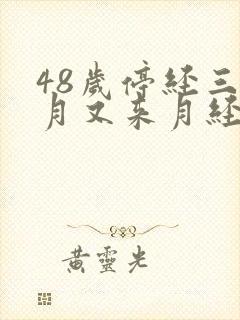 48歲停经三
月又来月經
黃靈光